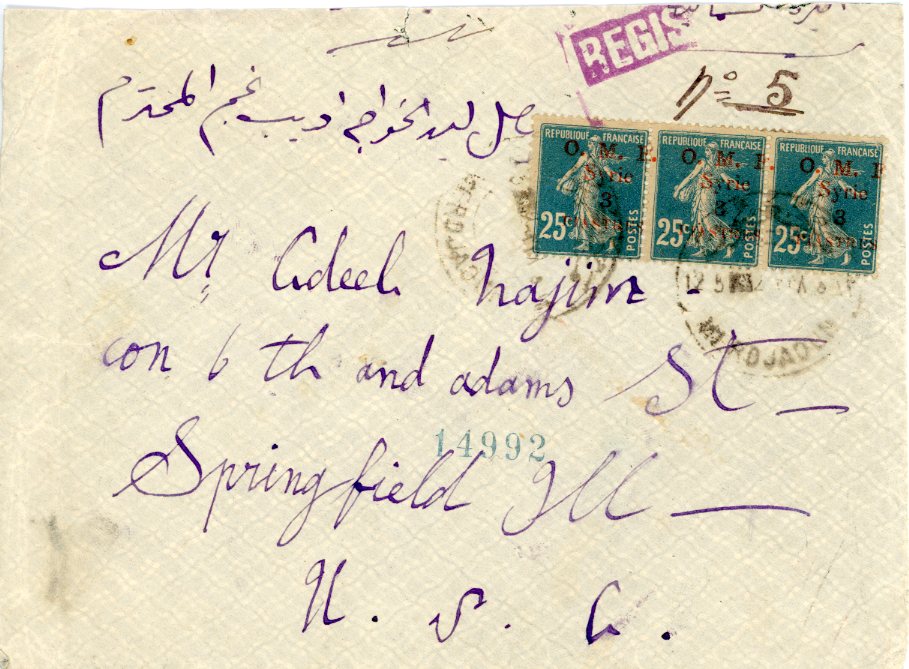 REGIS
no 5
الخواجه اديب نجم المحترم
REPUBLIQUE FRANÇAISE REPUBLIQUE FRANÇAISE REPUBLIQUE FRANÇAISE
O. M. F. O. M. F. O. M. F
Syrie Syrie Syrie
3 3 3
25c 25c 25c
POSTES POSTES POSTES
Mr Adeeb Najim -
con 6 th and adams St —
14992
Springfield Ill —
U. S. A.